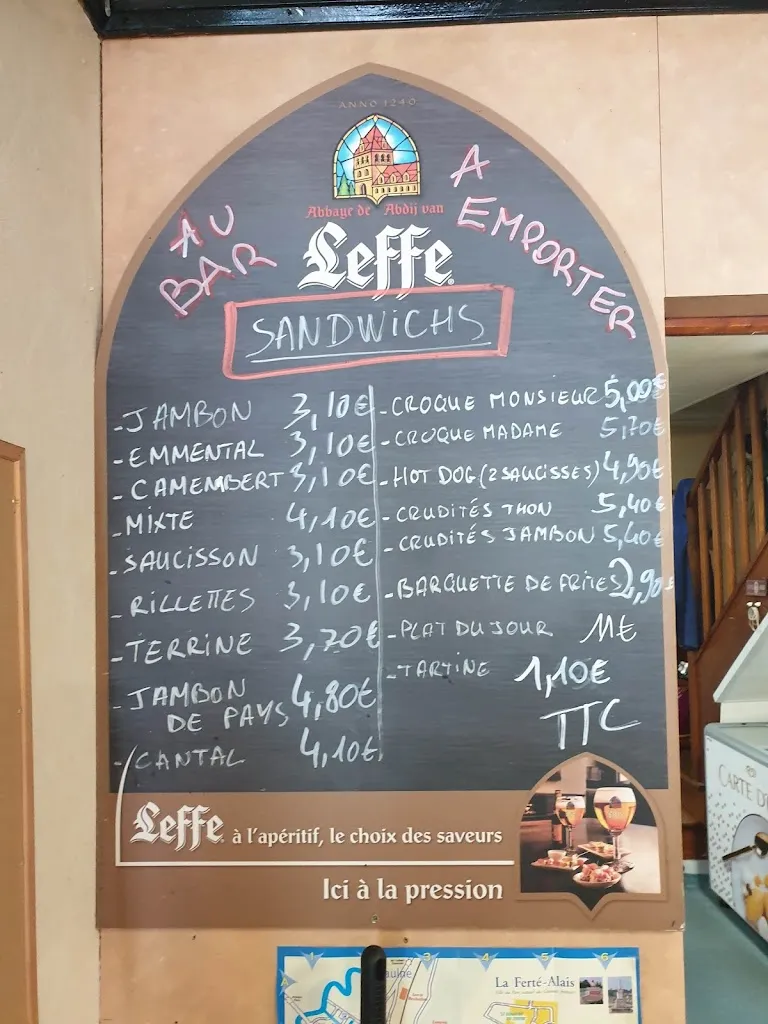 ANNO 1240
Abbaye de Abdij van
Leffe
AU
BAR
A
EMPORTER
SANDWICHS
-JAMBON 3,10€
-EMMENTAL 3,10€
-CAMEMBERT 3,10€
-MIXTE 4,10€
-SAUCISSON 3,10€
-RILLETTES 3,10€
-TERRINE 3,70€
-JAMBON
DE PAYS 4,80€
-CANTAL 4,10€
-CROQUE MONSIEUR 5,00€
-CROQUE MADAME 5,70€
-HOT DOG (2 SAUCISSES) 4,90€
-CRUDITÉS THON 5,40€
-CRUDITÉS JAMBON 5,40€
-BARQUETTE DE FRITES 2,90€
-PLAT DU JOUR 11€
-TARTINE 1,10€
TTC
Leffe à l'apéritif, le choix des saveurs
Ici à la pression
CARTE D'
1 3 4 5 6
La Ferté-Alais